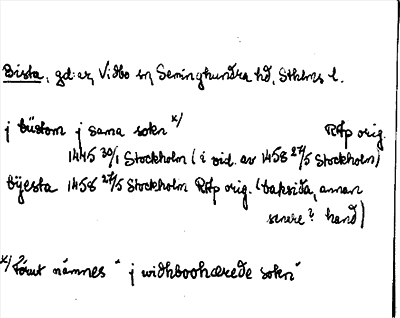 Bista, gd:ar, Vidbo sn, Seminghundra hd, Sthlms l.
j büstom j sama sokn x/ RAp orig.
1445 30/1 Stockholm (i vid. av 1458 27/5 Stockholm)
büjesta 1458 27/5 Stockholm RAp orig. (baksida, annan
senare? hand)
x/ Förut nämnes "j widhboohærede sokn"